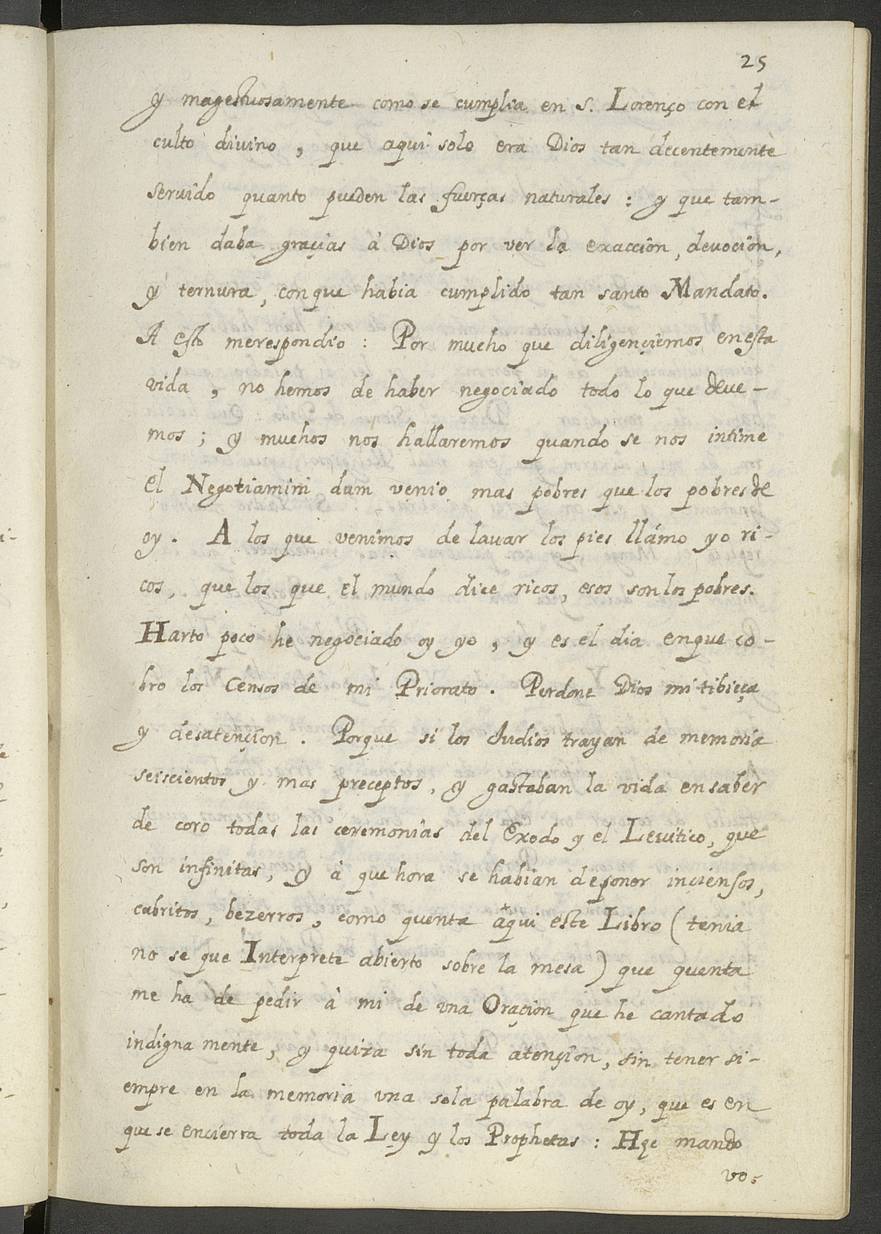 25
y magestuosamente como se cumplia en S. Lorenço con el
culto divino, que aqui solo era Dios tan decentemente
seruido quanto pueden las fuerças naturales : y que tam-
bien daba graçias à Dios por ver la exaccion, devoçion,
y ternura, conque habia cumplido tan santo Mandato.
A esto merespondio : Por mucho que diligençiemos enesta
vida, no hemos de haber negociado todo lo que deve-
mos ; y muchos nos hallaremos quando se nos intime
el Negotiamini dum venio mas pobres que los pobresde
oy. A los que venimos de lauar los pies llámo yo ri-
cos, que los que el mundo dice ricos, esos son los pobres.
Harto poco he negociado oy yo, y es el dia enque co-
bro los Censos de mi Priorato. Perdone Dios mi tibieça
y desatençion. Porque si los Judios trayan de memoria
seiscientos y mas preceptos, y gastaban la vida ensaber
de coro todas las ceremonias del Exodo y el Leuitico, que
son infinitas, y à que hora se habian deponer inciensos,
cabritos, bezerros, como quenta aqui este Libro (tenia
no se que Interprete abierto sobre la mesa) que quenta
me ha de pedir à mi de vna Oraçion que he cantado
indigna mente, y quiza sin toda atençion, sin tener si-
empre en la memoria vna sola palabra de oy, que es en
que se encierra toda la Ley y los Prophetas : Hęc mando
vo: